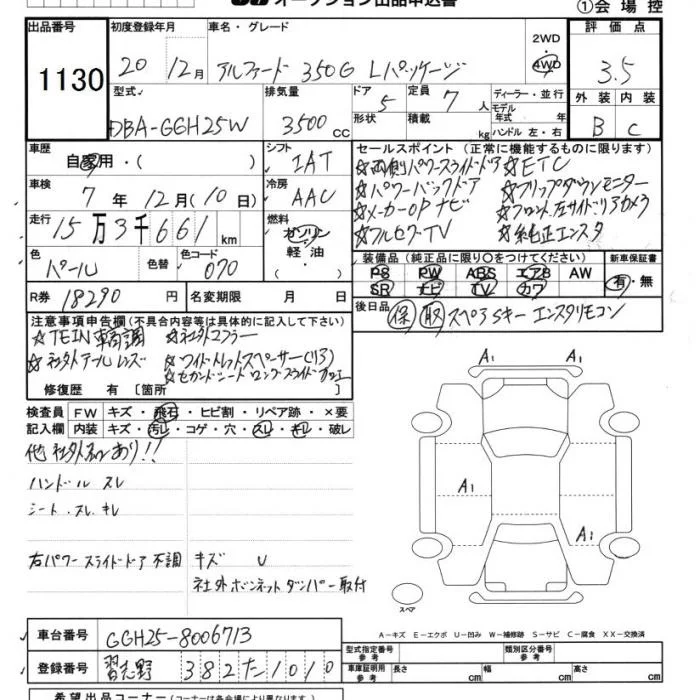 オークション出品申込書
①会場控
出品番号 初度登録年月 車名・グレード 2WD 評価点
1130 20 12月 アルファード 350G Lパッケージ 4WD 3.5
型式 排気量 ドア 定員 ディーラー・並行 外装 内装
DBA-GGH25W 3500cc 5 7人 モデル年式 年式 B C
形状 積載 kg ハンドル 左・右
車歴 シフト セールスポイント(正常に機能するものに限ります)
自家用・( ) IAT ☆両側パワースライドドア ☆ETC
車検 冷房 ☆パワーバックドア ☆フリップダウンモニター
7年12月(10日) AAC ☆メーカーOPナビ ☆フロント、左サイド、リアカメラ
走行 燃料 ☆フルセグTV ☆純正エンスタ
15万3千661km ガソリン 軽油 ( )
色 色替 色コード 装備品(純正品に限り○をつけてください) 新車保証書
パール 070 PS PW ABS エアB AW 有・無
SR ナビ TV カワ
R券 18290円 名変期限 月 日
後日品 保 取 スペアSキー エンスタリモコン
注意事項申告欄(不具合内容等は具体的に記入して下さい)
☆TEIN車高調 ☆社外マフラー
☆社外テールレンズ ☆ワイドトレットスペーサー(リア)
☆セカンドシートロングスライド加工
修復歴 有[箇所
検査員 FW キズ・飛石・ヒビ割・リペア跡・×要
記入欄 内装 キズ・汚レ・コゲ・穴・スレ・キレ・破レ
他社外品あり!!
ハンドル スレ
シート、スレ、キレ
右パワースライドドア不調 キズ U
社外ボンネットダンパー取付
A1 A1
A1 A1
スペア
A-キズ E-エクボ U-凹み W-補修跡 S-サビ C-腐食 XX-交換済
車台番号 GGH25-8006713
型式指定番号 参考 類別区分番号 参考
登録番号 習志野 382 た 1010
車庫証明用 参考 長さ cm 幅 cm 高さ cm
希望出品コーナー(コーナー名は各会場により異なります)